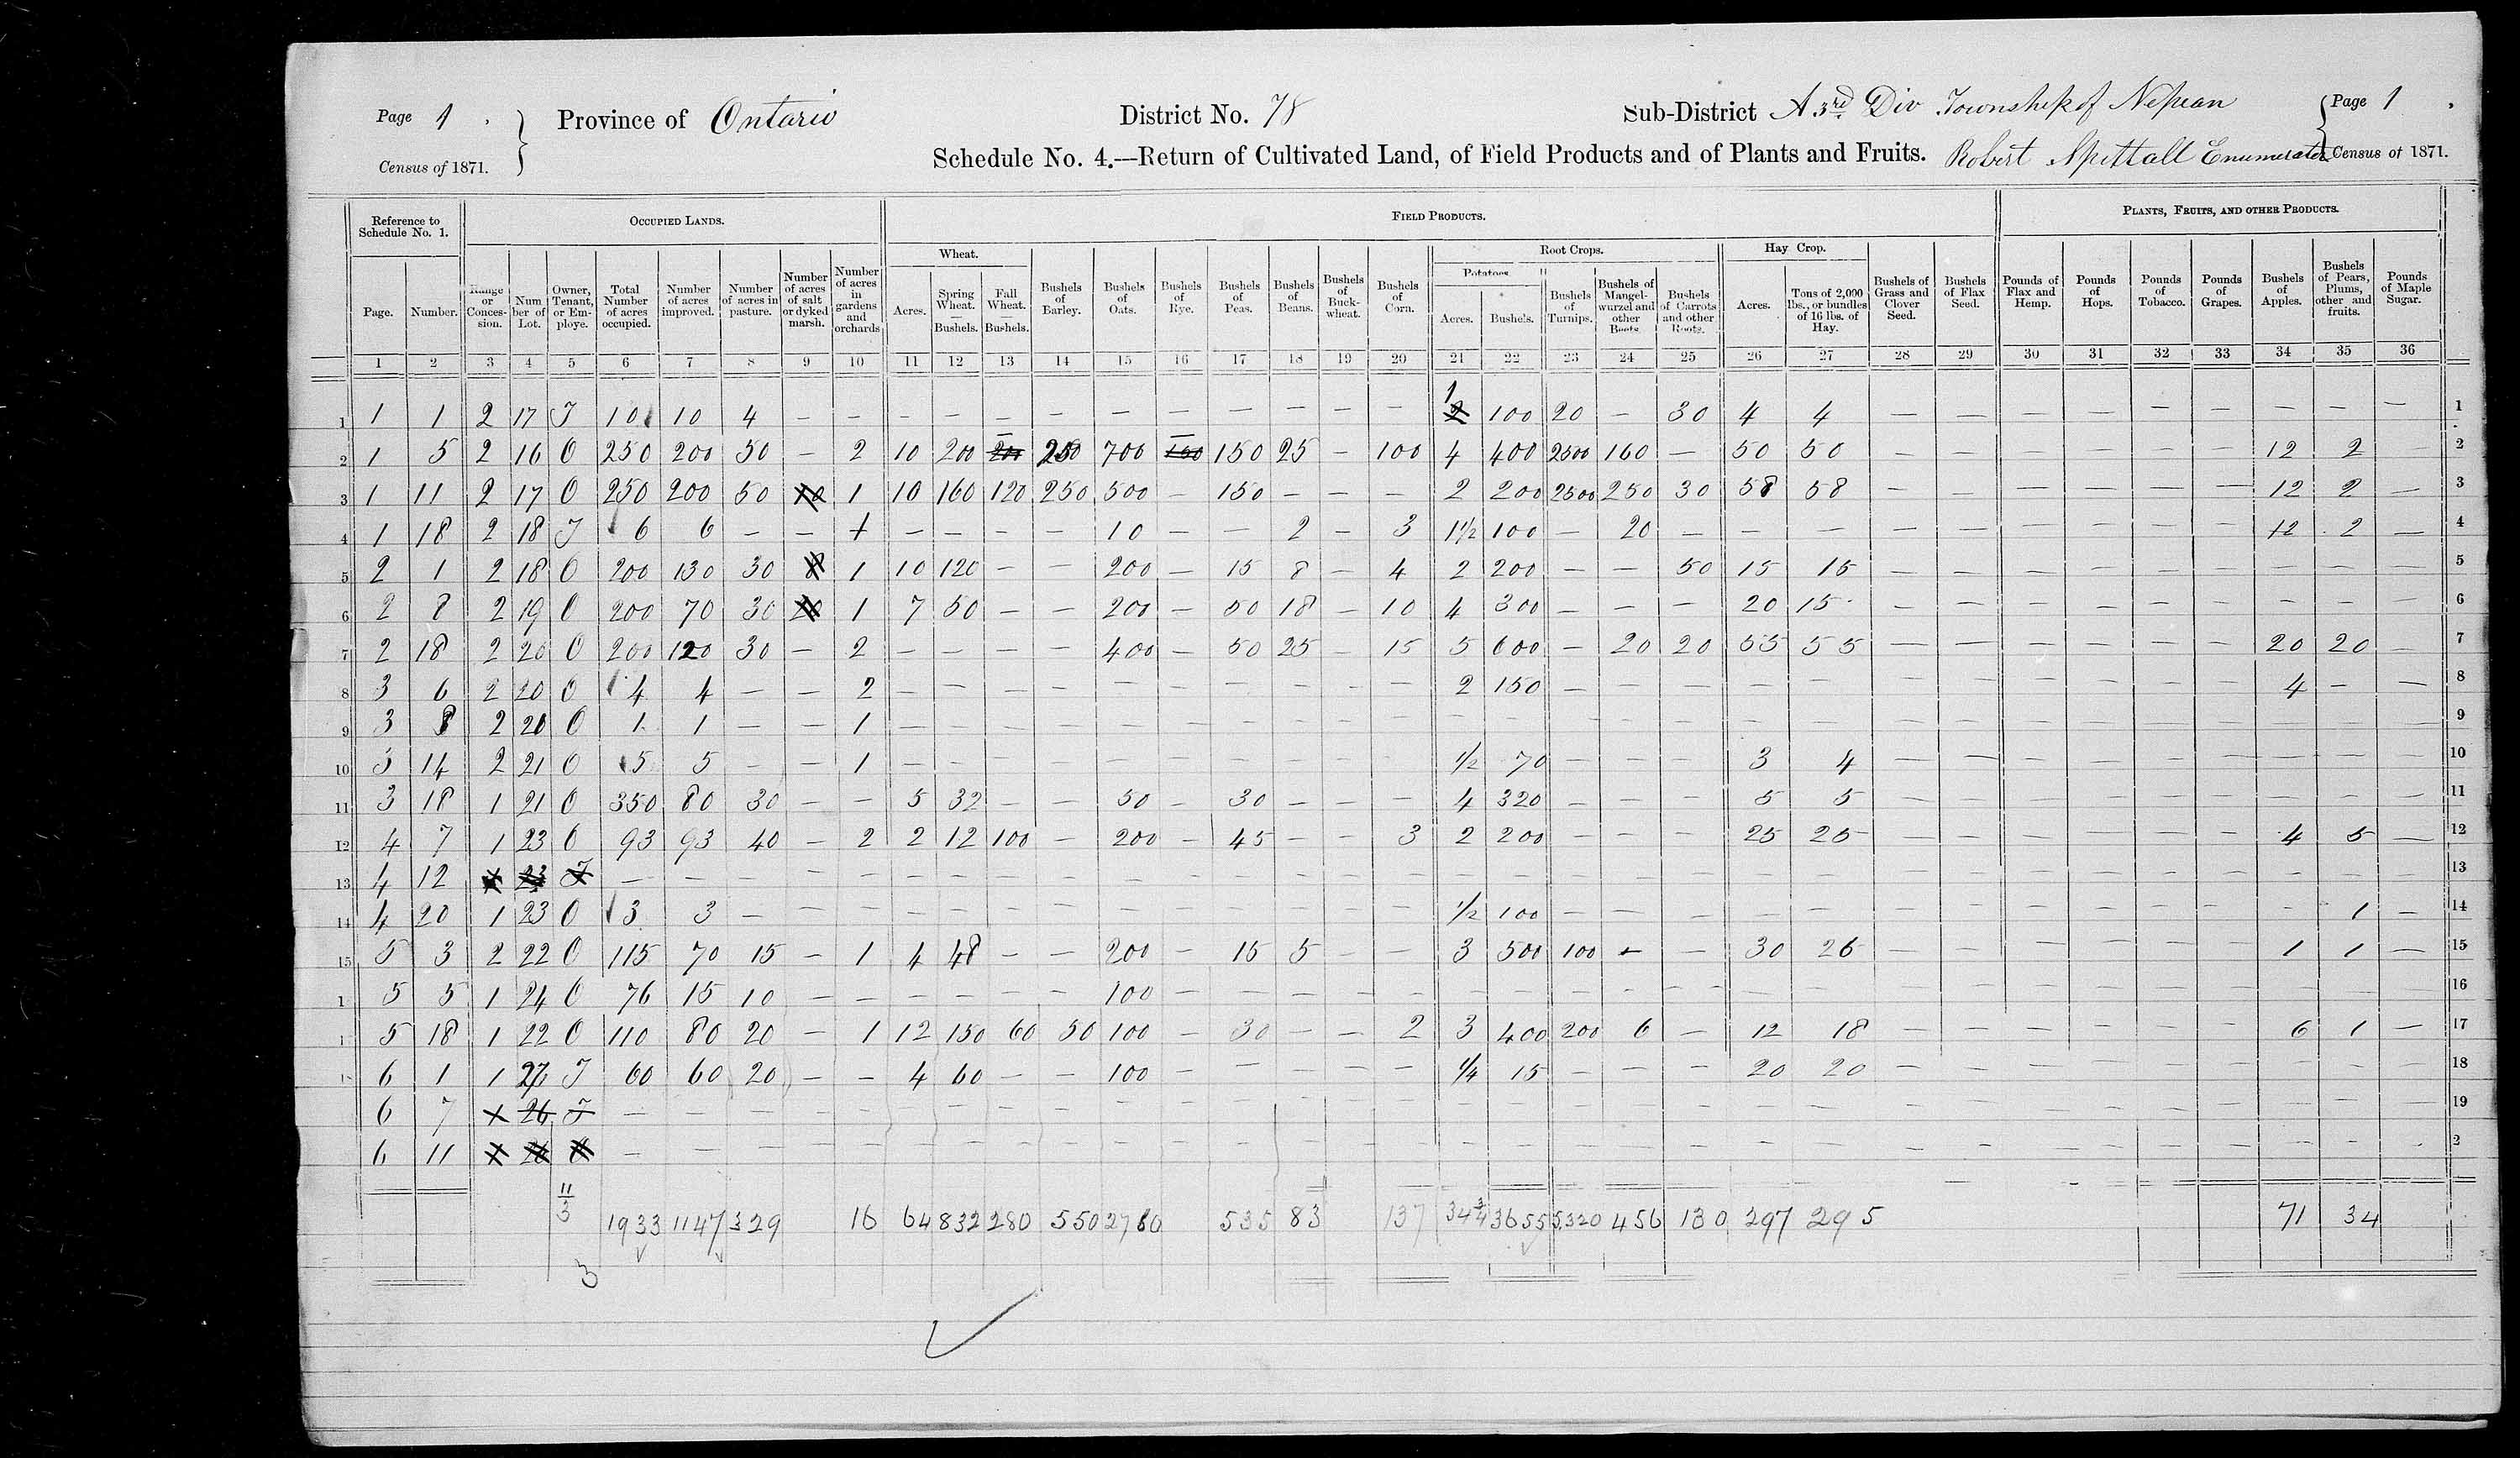 Page 1 . Province of Ontario District No. 78 Sub-District A 3rd Div Township of Nepean Page 1 .
Census of 1871. Schedule No. 4.—Return of Cultivated Land, of Field Products and of Plants and Fruits. Robert Spittall Enumerator Census of 1871.
Reference to Schedule No. 1. OCCUPIED LANDS. FIELD PRODUCTS. PLANTS, FRUITS, AND OTHER PRODUCTS.
Wheat. Root Crops. Hay Crop.
Potatoes.
Page. Number. Range or Conces-sion. Num ber of Lot. Owner, Tenant, or Em-ploye. Total Number of acres occupied. Number of acres improved. Number of acres in pasture. Number of acres of salt or dyked marsh. Number of acres in gardens and orchards Acres. Spring Wheat. — Bushels. Fall Wheat. — Bushels. Bushels of Barley. Bushels of Oats. Bushels of Rye. Bushels of Peas. Bushels of Beans. Bushels of Buck-wheat. Bushels of Corn. Acres. Bushels. Bushels of Turnips. Bushels of Mangel-wurzel and other Beets. Bushels of Carrots and other Roots. Acres. Tons of 2,000 lbs., or bundles of 16 lbs. of Hay. Bushels of Grass and Clover Seed. Bushels of Flax Seed. Pounds of Flax and Hemp. Pounds of Hops. Pounds of Tobacco. Pounds of Grapes. Bushels of Apples. Bushels of Pears, Plums, other and fruits. Pounds of Maple Sugar.
1 2 3 4 5 6 7 8 9 10 11 12 13 14 15 16 17 18 19 20 21 22 23 24 25 26 27 28 29 30 31 32 33 34 35 36
1 1 1 2 17 T 10 10 4 — — — — — — — — — — — — 1 100 20 — 30 4 4 — — — — — — — — — 1
2 1 5 2 16 O 250 200 50 — 2 10 200 — 250 700 — 150 25 — 100 4 400 2500 160 — 50 50 — — — — — — 12 2 — 2
3 1 11 2 17 O 250 200 50 1 10 160 120 250 500 — 150 — — — 2 200 2500 250 30 58 58 — — — — — — 12 2 — 3
4 1 18 2 18 T 6 6 — — + — — — — 10 — — 2 — 3 1½ 100 — 20 — — — — — — — — — 12 2 — 4
5 2 1 2 18 O 200 130 30 1 10 120 — — 200 — 15 8 — 4 2 200 — — 50 15 15 — — — — — — — — — 5
6 2 8 2 19 O 200 70 30 1 7 50 — — 200 — 50 18 — 10 4 300 — — — 20 15 — — — — — — — — — 6
7 2 18 2 20 O 200 120 30 — 2 — — — — 400 — 50 25 — 15 5 600 — 20 20 55 55 — — — — — — 20 20 — 7
8 3 6 2 20 O 4 4 — — 2 — — — — — — — — — — 2 150 — — — — — — — — — — — 4 — — 8
9 3 8 2 20 O 1 1 — — 1 — — — — — — — — — — — — — — — — — — — — — — — — — — 9
10 3 14 2 21 O 5 5 — — 1 — — — — — — — — — — ½ 70 — — — 3 4 — — — — — — — — — 10
11 3 18 1 21 O 350 80 30 — — 5 32 — — 50 — 30 — — — 4 320 — — — 5 5 — — — — — — — — — 11
12 4 7 1 23 O 93 93 40 — 2 2 12 100 — 200 — 45 — — 3 2 200 — — — 25 25 — — — — — — 4 5 — 12
13 4 12 — — — — — — — — — — — — — — — — — — — — — — — — — — — — — — — 13
14 4 20 1 23 O 3 3 — — — — — — — — — — — — — ½ 100 — — — — — — — — — — — — 1 — 14
15 5 3 2 22 O 115 70 15 — 1 4 48 — — 200 — 15 5 — — 3 500 100 — — 30 26 — — — — — — 1 1 — 15
1 5 5 1 24 O 76 15 10 — — — — — — 100 — — — — — — — — — — — — — — — — — — — — — 16
1 5 18 1 22 O 110 80 20 — 1 12 150 60 50 100 — 30 — — 2 3 400 200 6 — 12 18 — — — — — — 6 1 — 17
18 6 1 1 27 T 60 60 20 — — 4 60 — — 100 — — — — — ¼ 15 — — — 20 20 — — — — — — — — — 18
6 7 x 26 T — — — — — — — — — — — — — — — — — — — — — — — — — — — — — — — 19
6 11 — — — — — — — — — — — — — — — — — — — — — — — — — — — — — — — 2
11
3 1933 1147 329 16 64 832 280 550 2760 535 83 137 34¾ 3655 5,320 456 130 297 295 71 34
3